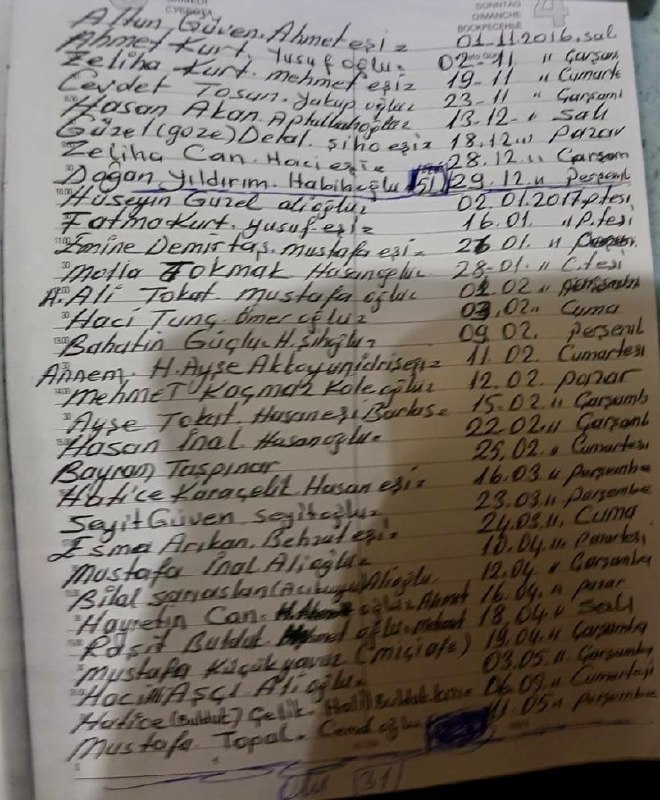 СУББОТА
SONNTAG
DIMANCHE
ВОСКРЕСЕНЬЕ
4
Altun Güven. Ahmet eşi = 01-11 2016. salı
Ahmet Kurt. Yusuf oğlu = 02-11 " Çarşam
Zeliha Kurt. mehmet eşi = 19-11 " Cumarte
Cevdet Tosun. yakup oğlu = 23-11 " Çarşami
Hasan Akan. Aptullahoğlu = 13.12. " salı
Güzel (göze) Delal. şıho eşi = 18.12 " pazar
Zeliha Can. Haci eşi = 28.12. " Çarşam
Doğan yıldırım. Habiboğlu 51 29.12. " perşenb
Hüseyin Güzel alioğlu = 02.01.2017. p.tesi
Fatma Kurt. yusuf eşi = 16.01. " P.tesi
Emine Demirtaş. mustafa eşi = 26 01. "
Molla Tokmak Hasanoğlu = 28-01. " C.tesi
A. Ali Tokat. mustafa oğlu = 02 02 "
Haci Tunç. ömer oğlu = 03.02. " Cuma
Bahatin Güçlü. H. Şıhoğlu = 09 02. perşenb
Annem. H. Ayşe Aktoyun idris eşi = 11 02. Cumartesi
Mehmet Kaçmaz Koleoğlu = 12.02. pazar
Ayşe Tokat. Hasan eşi = 15.02. " Çarşamb
Hasan İnal Hasanoğlu = 22.02. " Çarşamb
Bayram Taşpınar 25.02. " Cumartesi
Hatice Karaçelik Hasan eşi = 16.03. " perşembe
Seyit Güven seyitoğlu = 23.03. " perşembe
Esma Arıkan. Behzat eşi = 24.03. " Cuma
Mustafa İnal Alioğlu = 10.04. " Pazartesi
Bilal Sarıaslan Alioğlu 12.04. " Çarşamba
Hayretin Can. oğlu = Ahmet 16.04. " pazar
Raşit Buldut. oğlu = 18.04 " Salı
Mustafa Küçükyavuz 19.04. " Çarşamba
Hacim AŞÇI Alioğlu = 03.05. " Çarşamba
Hatice (Buldut) Çelik. Halil Buldut kızı = " Cumartesi
Mustafa Topal. Cemal oğlu 11.05. " perşembe
31